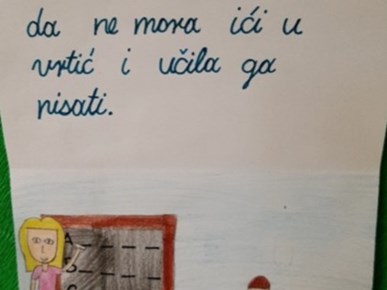 da ne mora ići u
vrtić i učila ga
pisati.
A
B